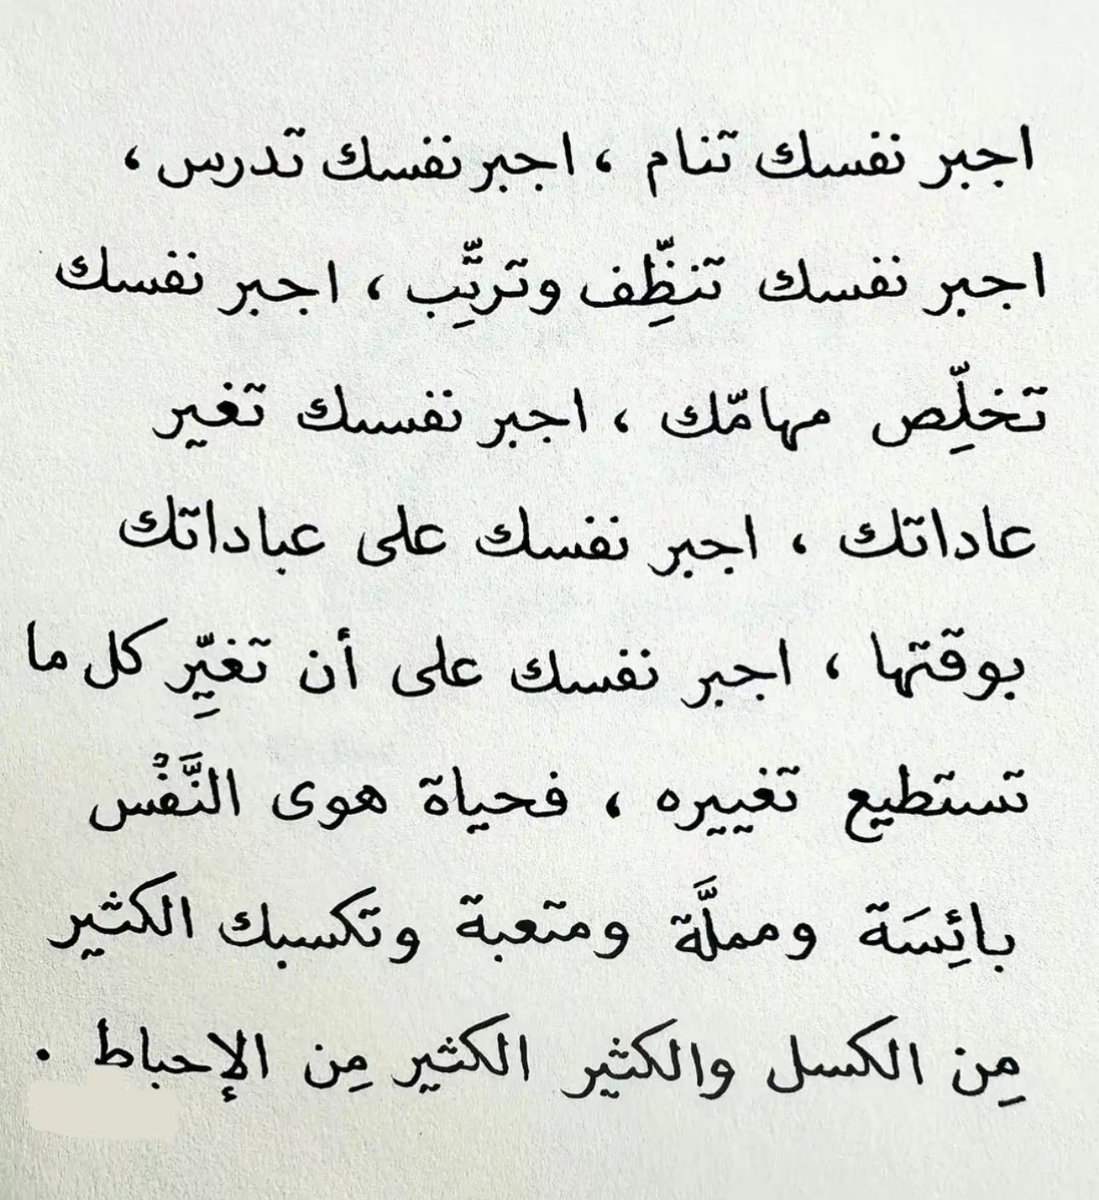 اجبر نفسك تنام ، اجبر نفسك تدرس ،
اجبر نفسك تنظِّف وترتِّب ، اجبر نفسك
تخلِّص مهامّك ، اجبر نفسك تغير
عاداتك ، اجبر نفسك على عباداتك
بوقتها ، اجبر نفسك على أن تغيِّر كل ما
تستطيع تغييره ، فحياة هوى النَّفْس
بائِسَة ومملَّة ومتعبة وتكسبك الكثير
مِن الكسل والكثير الكثير مِن الإحباط .